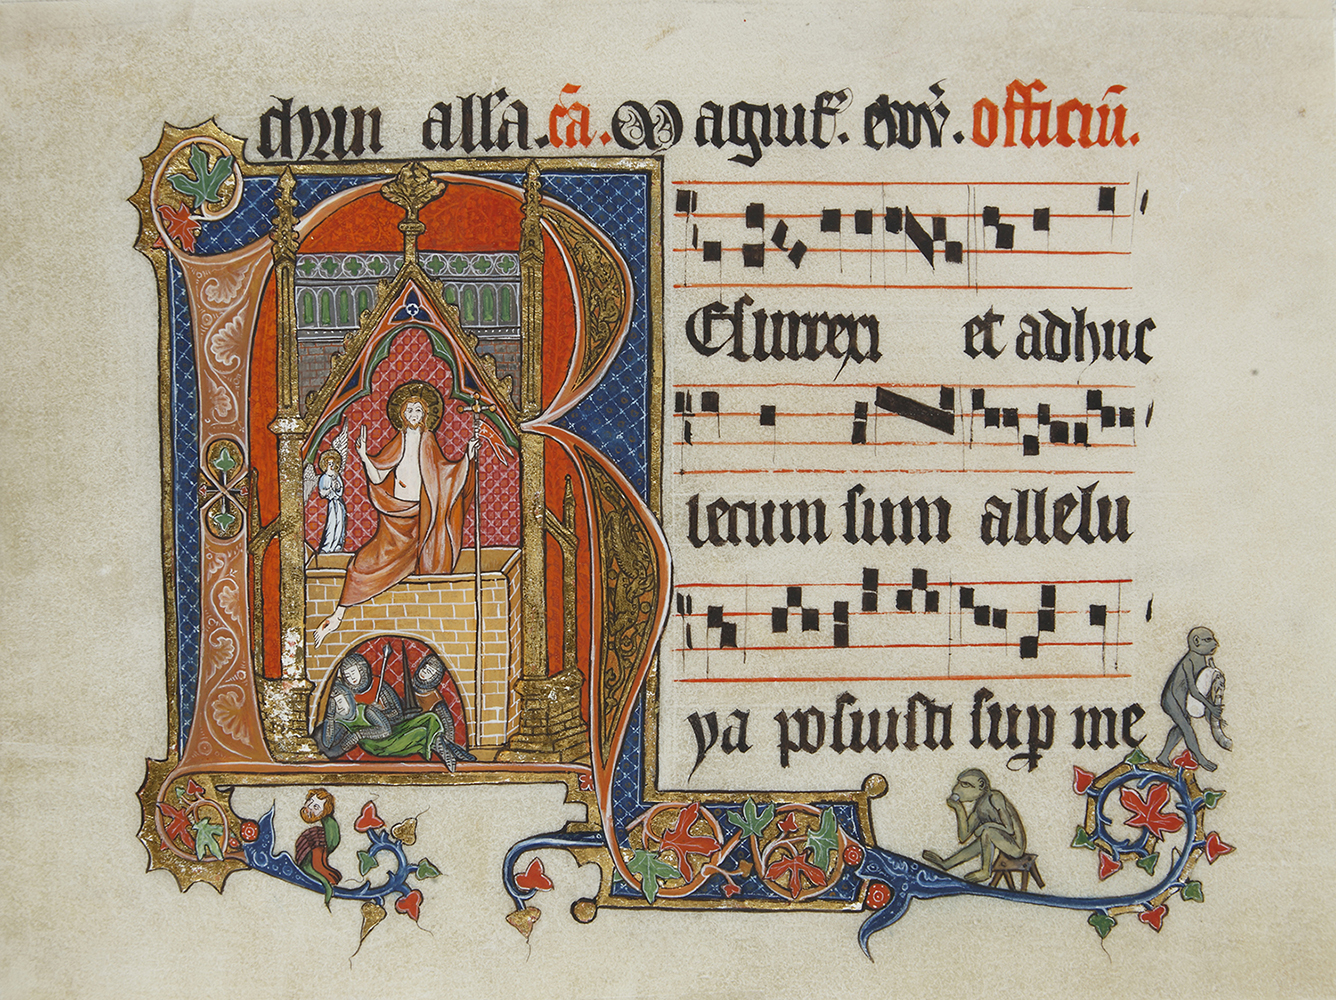 alla. cā. Magnif. officiū.
REsurrexi et adhuc
tecum sum allelu
ya posuisti suꝑ me